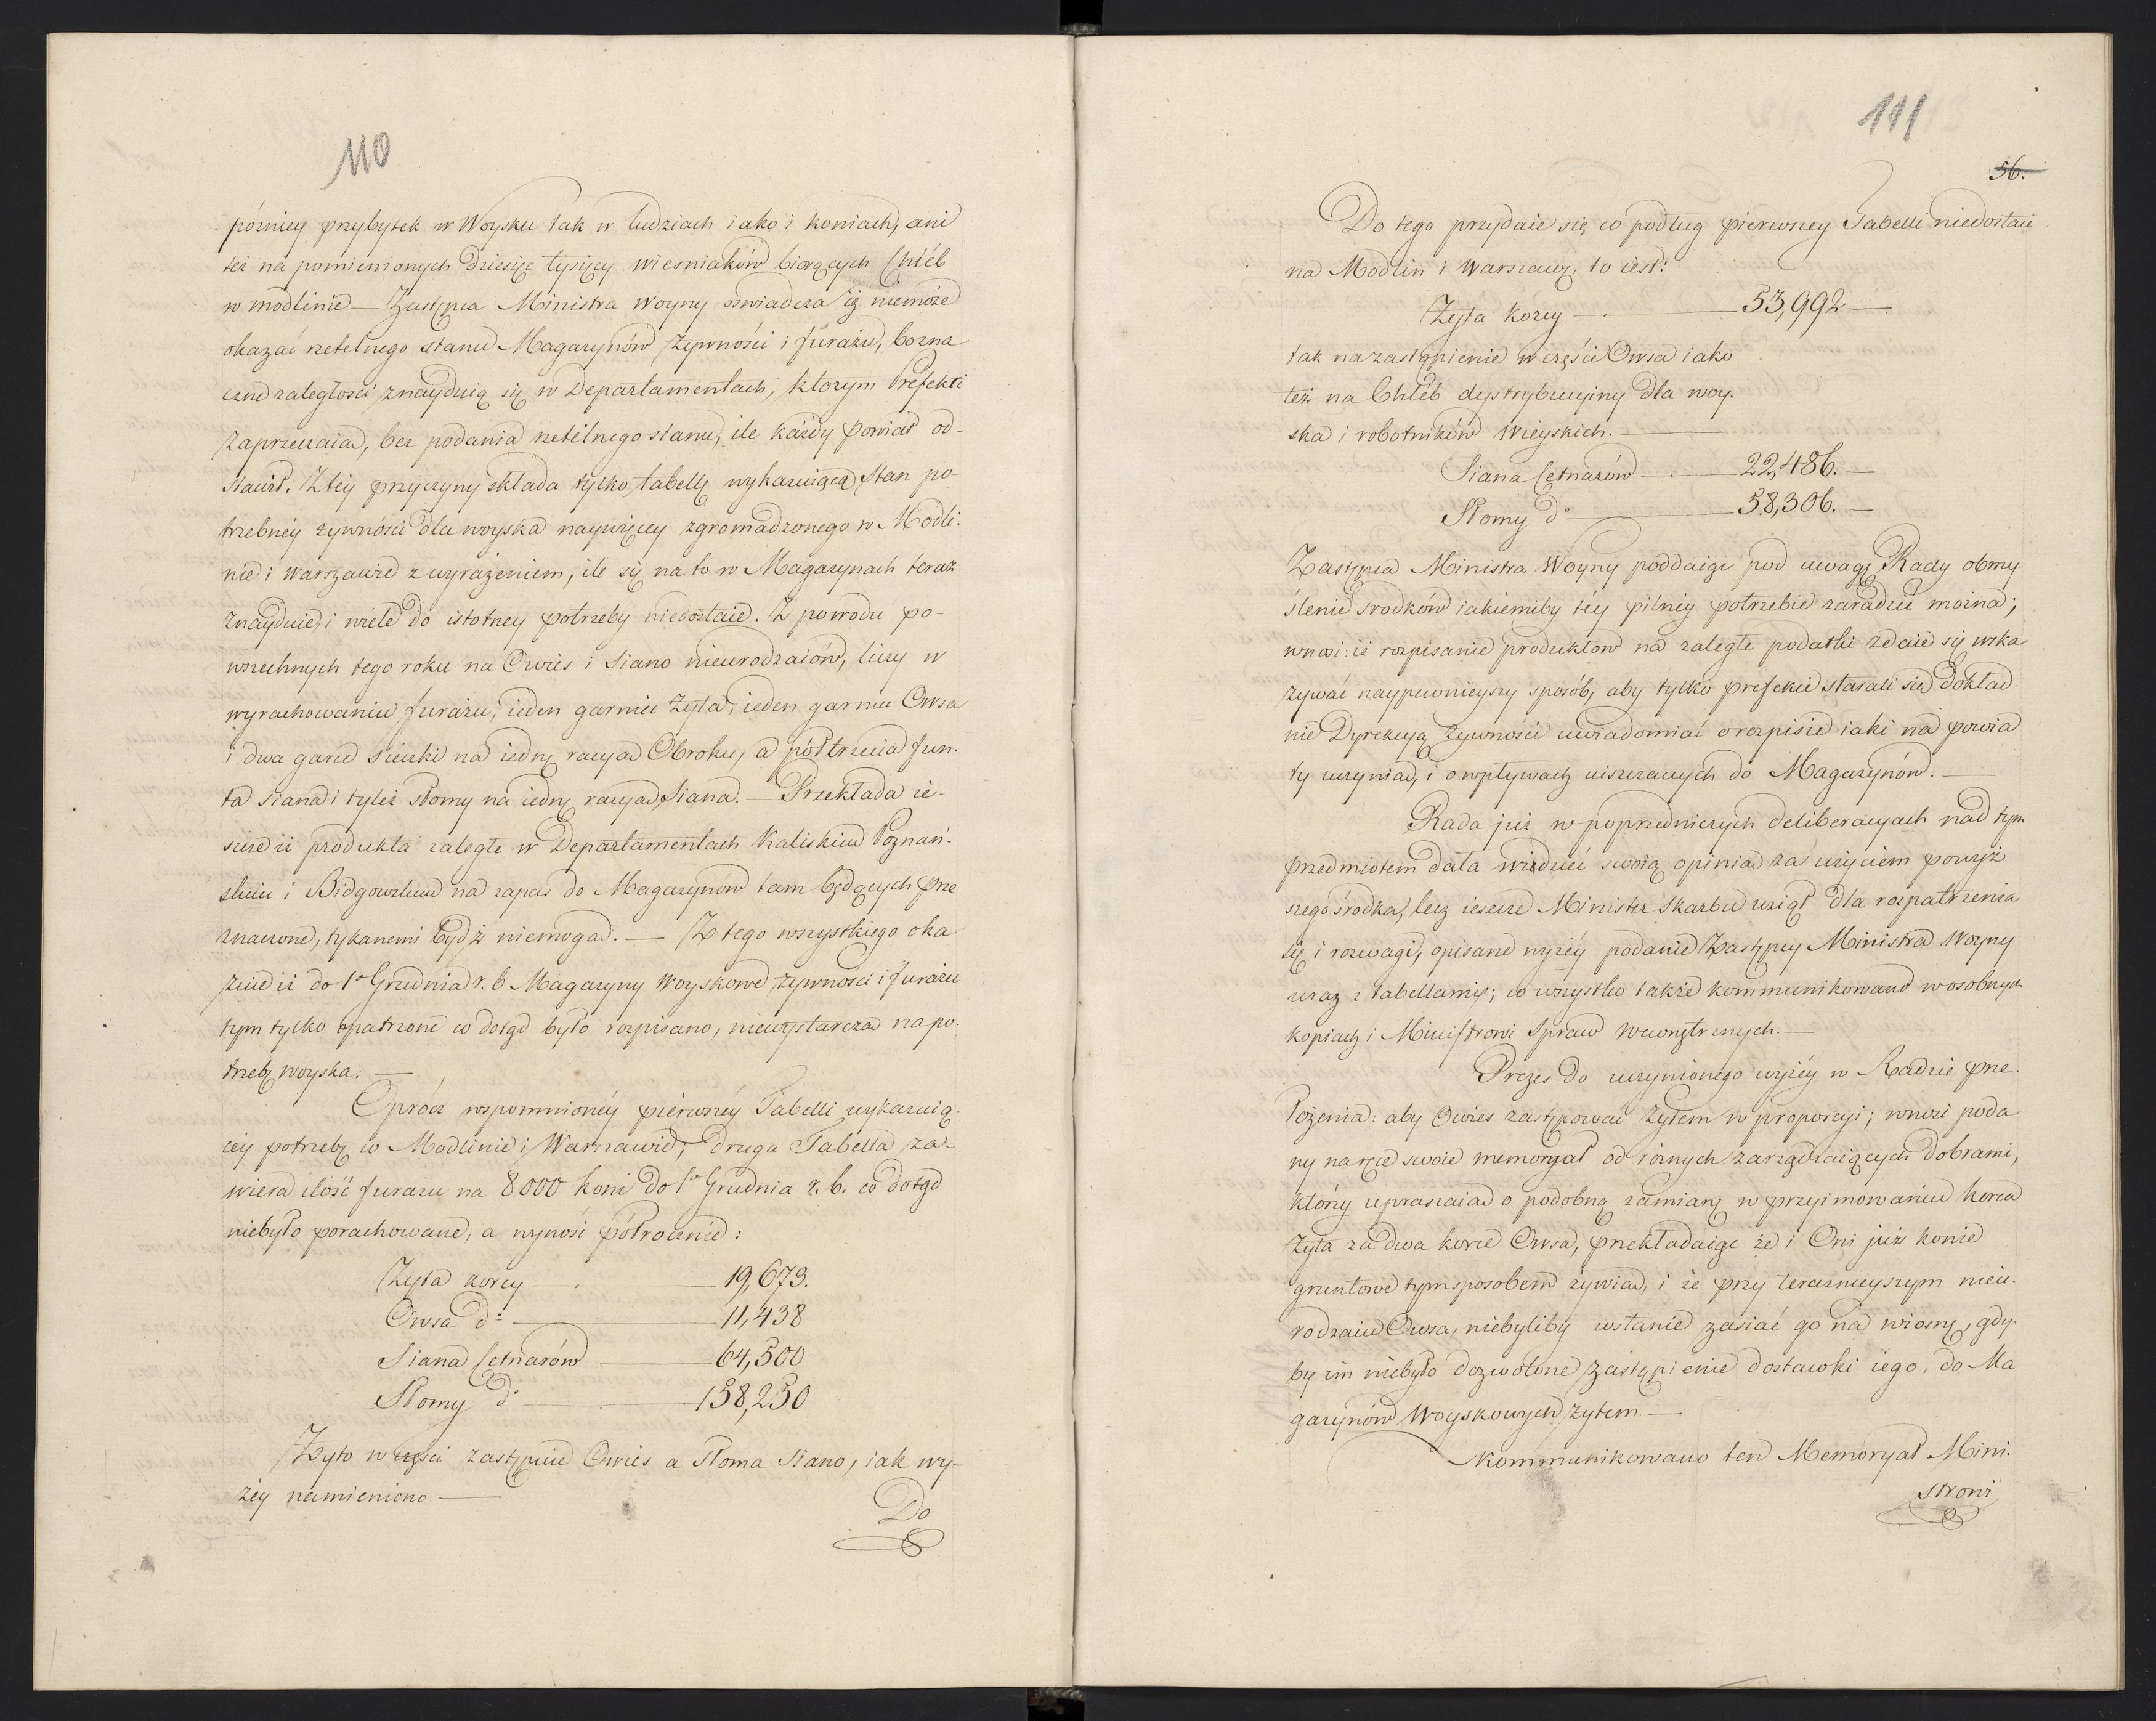 110
późniey przybytek w Woysku tak w ludziach iako i koniach, ani
też na pomienionych dziesięć tysięcy wiesniaków biorących Chléb
w modlinie — Zastępca Ministra Woyny oświadcza iż niemoże
okazać rzetelnego stanu Magazynów żywności i furażu, bo zna
czne zaległości znayduią się w Departamentach, którym Prefekci
zaprzeczaią, bez podania rzetelnego stanu, ile każdy powiat od-
stawił. Z téy przyczyny składa tylko tabellę wykazuiącą Stan po-
trzebnéy żywności dla woyska naywięcey zgromadzonego w Modli-
nie i Warszawie z wyrażeniem, ile się na to w Magazynach teraz
znayduie, i wiele do istotney potrzeby niedostaie. Z powodu po-
wszechnych tego roku na Owies i Siano nieurodzaiów, liczy w
wyrachowaniu furażu, ieden garniec Żyta, ieden garniec Owsa
i dwa garce sieczki na iednę racyą Obroku, a półtrzecia fun-
ta siana i tyleż słomy na iednę racyą Siana. — Przekłada ie-
szcze iż produkta zaległe w Departamentach Kaliskim Poznań-
skim i Bidgowskim na zapas do Magazynów tam będących prze
znaczone, tykanemi bydź niemogą. — Z tego wszystkiego oka
zuie iż do 1o Grudnia r. b Magazyny Woyskowe żywności i furażu
tym tylko opatrzone co dotąd było rozpisano, niewystarczą na po-
trzebę woyska. —
Oprócz wspomnionéy pierwszéy Tabelli wykazuią-
céy potrzebę w Modlinie i Warszawie; druga Tabella za-
wiera ilość furażu na 8000 koni do 1o Grudnia r. b. co dotąd
niebyło porachowane, a wynosi półrocznie:
Żyta korcy — 19,673.
Owsa do — 11,438
Siana Cetnarów — 64,500
Słomy do — 158,250
Żyto w części zastępuie Owies a Słoma Siano, iak wy-
żéy namieniono —
Do
111
56.
Do tego przydaie się co podług pierwszey Tabelli niedostaie
na Modlin i Warszawę, to iest:
Żyta korcy — 53,992 —
tak na zastąpienie w części Owsa iako
też na Chléb dystrybucyiny dla woy-
ska i robotników Wieyskich. —
Siana Cetnarów — 22,486. —
Słomy do — 58,306. —
Zastępca Ministra Woyny poddaiąc pod uwagę Rady obmy
ślenie srodków iakiemiby téy pilnéy potrzebie zaradzić można;
wnosi: iż rozpisanie produktów na zaległe podatki zdaie się wska
zywać naypewnieyszy sposób, aby tylko prefekci starali się dokład-
nie Dyrekcyą żywności uwiadomiać o rozpisie iaki na powia
ty uczynią, i o wpływach uiszczonych do Magazynów. —
Rada już w poprzedniczych deliberacyach nad tym
przedmiotem dała widzieć swoią opinią za użyciem powyż
szego środka, lecz ieszcze Minister Skarbu wziął dla rozpatrzenia
się i rozwagi, opisane wyżéy podanie Zastępcy Ministra Woyny
wraz z tabellami; co wszystko także kommunikowano w osobnych
kopiach i Ministrowi Spraw Wewnętrznych. —
Prezes do uczynionego wyżéy w Radzie prze-
łożenia: aby Owies zastępować Żytem w proporcyi; wnosi poda
ny na ręce swoie memoryał od róznych zarządzaiących dobrami,
którzy upraszaią o podobną zamianę w przyimowaniu korca
Żyta za dwa korce Owsa, przekładaiąc że i Oni już konie
gruntowe tym sposobem żywią, i że przy teraznieyszym nieu-
rodzaiu Owsa, niebyliby wstanie zasiać go na wiosnę, gdy-
by im niebyło dozwolone zastąpienie dostawki iego, do Ma
gazynów Woyskowych Żytem. —
Kommunikowano ten Memoryał Mini-
strowi